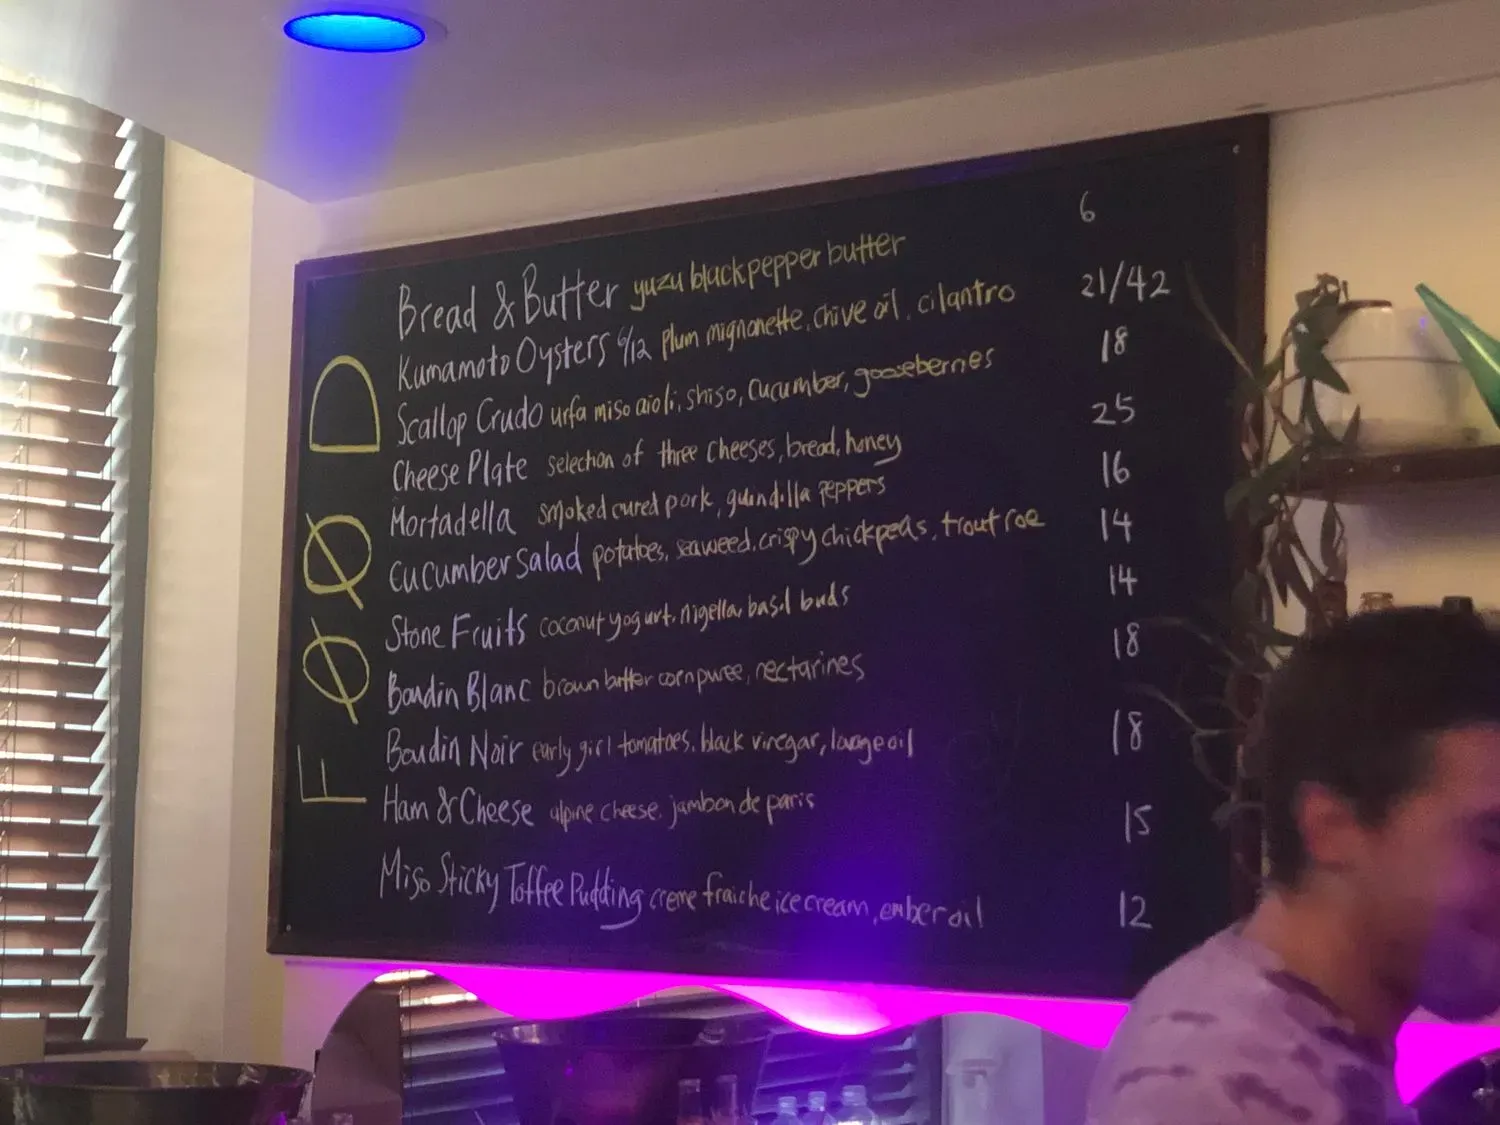 FØØD
Bread & Butter yuzu black pepper butter 6
Kumamoto Oysters 6/12 plum mignonette, chive oil, cilantro 21/42
Scallop Crudo urfa miso aioli, shiso, cucumber, gooseberries 18
Cheese Plate selection of three cheeses, bread, honey 25
Mortadella smoked cured pork, guindilla peppers 16
Cucumber Salad potatoes, seaweed, crispy chickpeas, trout roe 14
Stone Fruits coconut yogurt, nigella, basil buds 14
Boudin Blanc brown butter corn puree, nectarines 18
Boudin Noir early girl tomatoes, black vinegar, lovage oil 18
Ham & Cheese alpine cheese, jambon de paris 15
Miso Sticky Toffee Pudding creme fraiche ice cream, ember oil 12